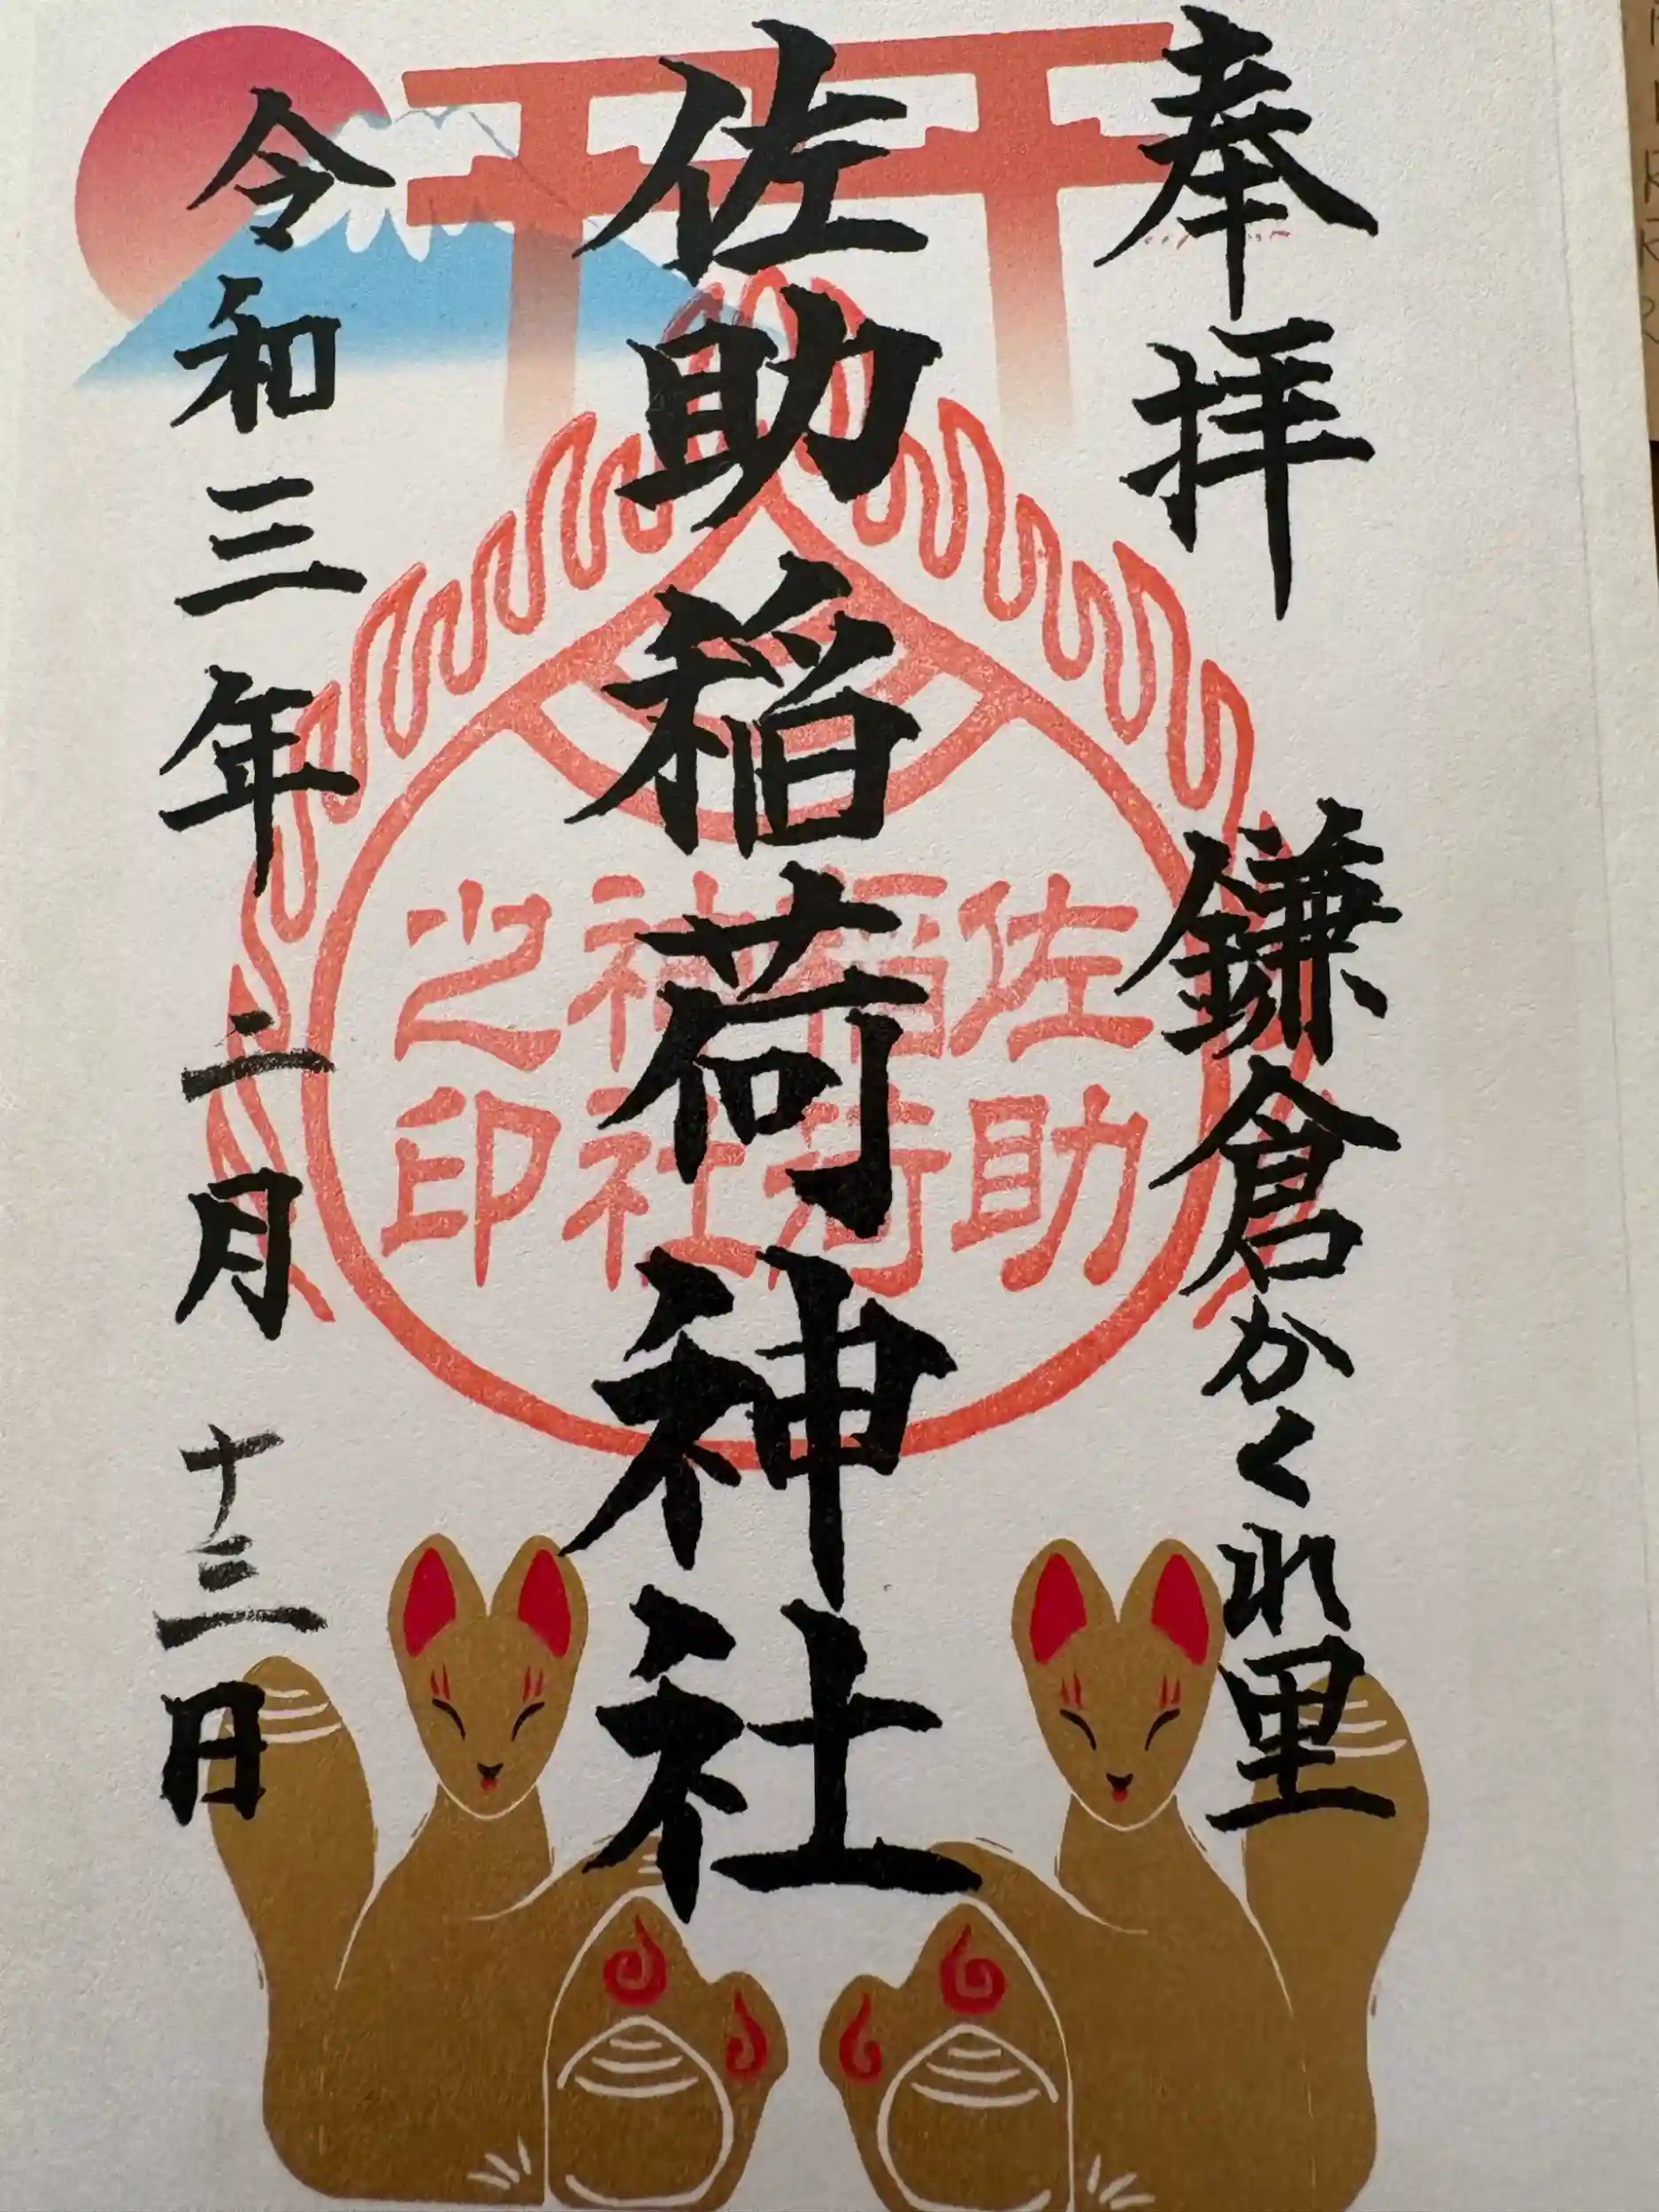 奉拝 鎌倉かくれ里
佐助稲荷神社
令和三年二月十三日
佐助
稲荷
神社
之印